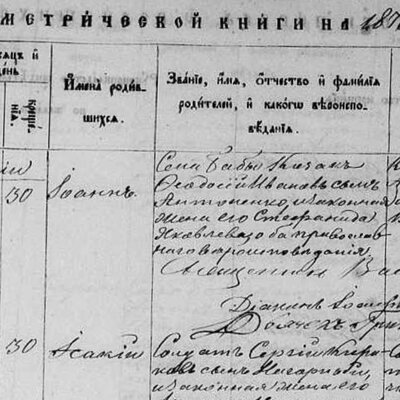 МЕТРИЧЕСКОЙ КНИГИ НА 187
МѢСЯЦЪ И
ДЕНЬ
КРЕЩЕНІЯ.
ИМЕНА РОДИВ-
ШИХСЯ.
ЗВАНІЕ, ИМЯ, ОТЧЕСТВО И ФАМИЛІЯ
РОДИТЕЛЕЙ, И КАКОГѠ ВѢРОИСПО-
ВѢДАНІЯ.
30
Іоаннъ.
Села Бабы Козакъ
Ѳеодосій Ивановъ сынъ
Антоненко, и законная
жена его Стефанида
Яковлева, оба православ-
наго вѣроисповѣданія.
Священникъ
Діаконъ
30
Исакій
Солдатъ Сергій
сынъ
и законная жена его